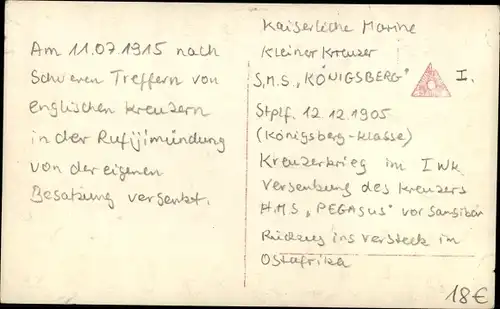 Am 11.07.1915 nach
Schweren Treffern von
englischen Kreuzern
in der Rufijimündung
von der eigenen
Besatzung versenkt.
Kaiserliche Marine
Kleiner Kreuzer
S.M.S. „KÖNIGSBERG" I.
Stplf. 12.12.1905
(Königsberg-Klasse)
Kreuzerkrieg im I WK
Versenkung des Kreuzers
H.M.S „PEGASUS" vor Sansibar
Rückzug ins Versteck im
Ostafrika
18€